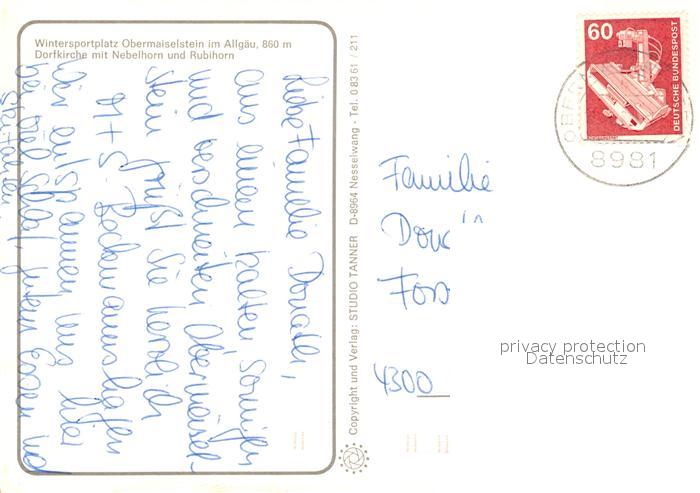 Wintersportplatz Obermaiselstein im Allgäu, 860 m
Dorfkirche mit Nebelhorn und Rubihorn
Liebe Familie
aus einem kalten sonnigen
und verschneiten Obermaisel-
stein grüßt Sie herzlich
M + S.
Wir entspannen uns hier
bei viel Schlaf, gutem Essen und
Copyright und Verlag: STUDIO TANNER D-8964 Nesselwang · Tel. 0 83 61 / 211
60
DEUTSCHE BUNDESPOST
8981
Familie
4300
privacy protection
Datenschutz